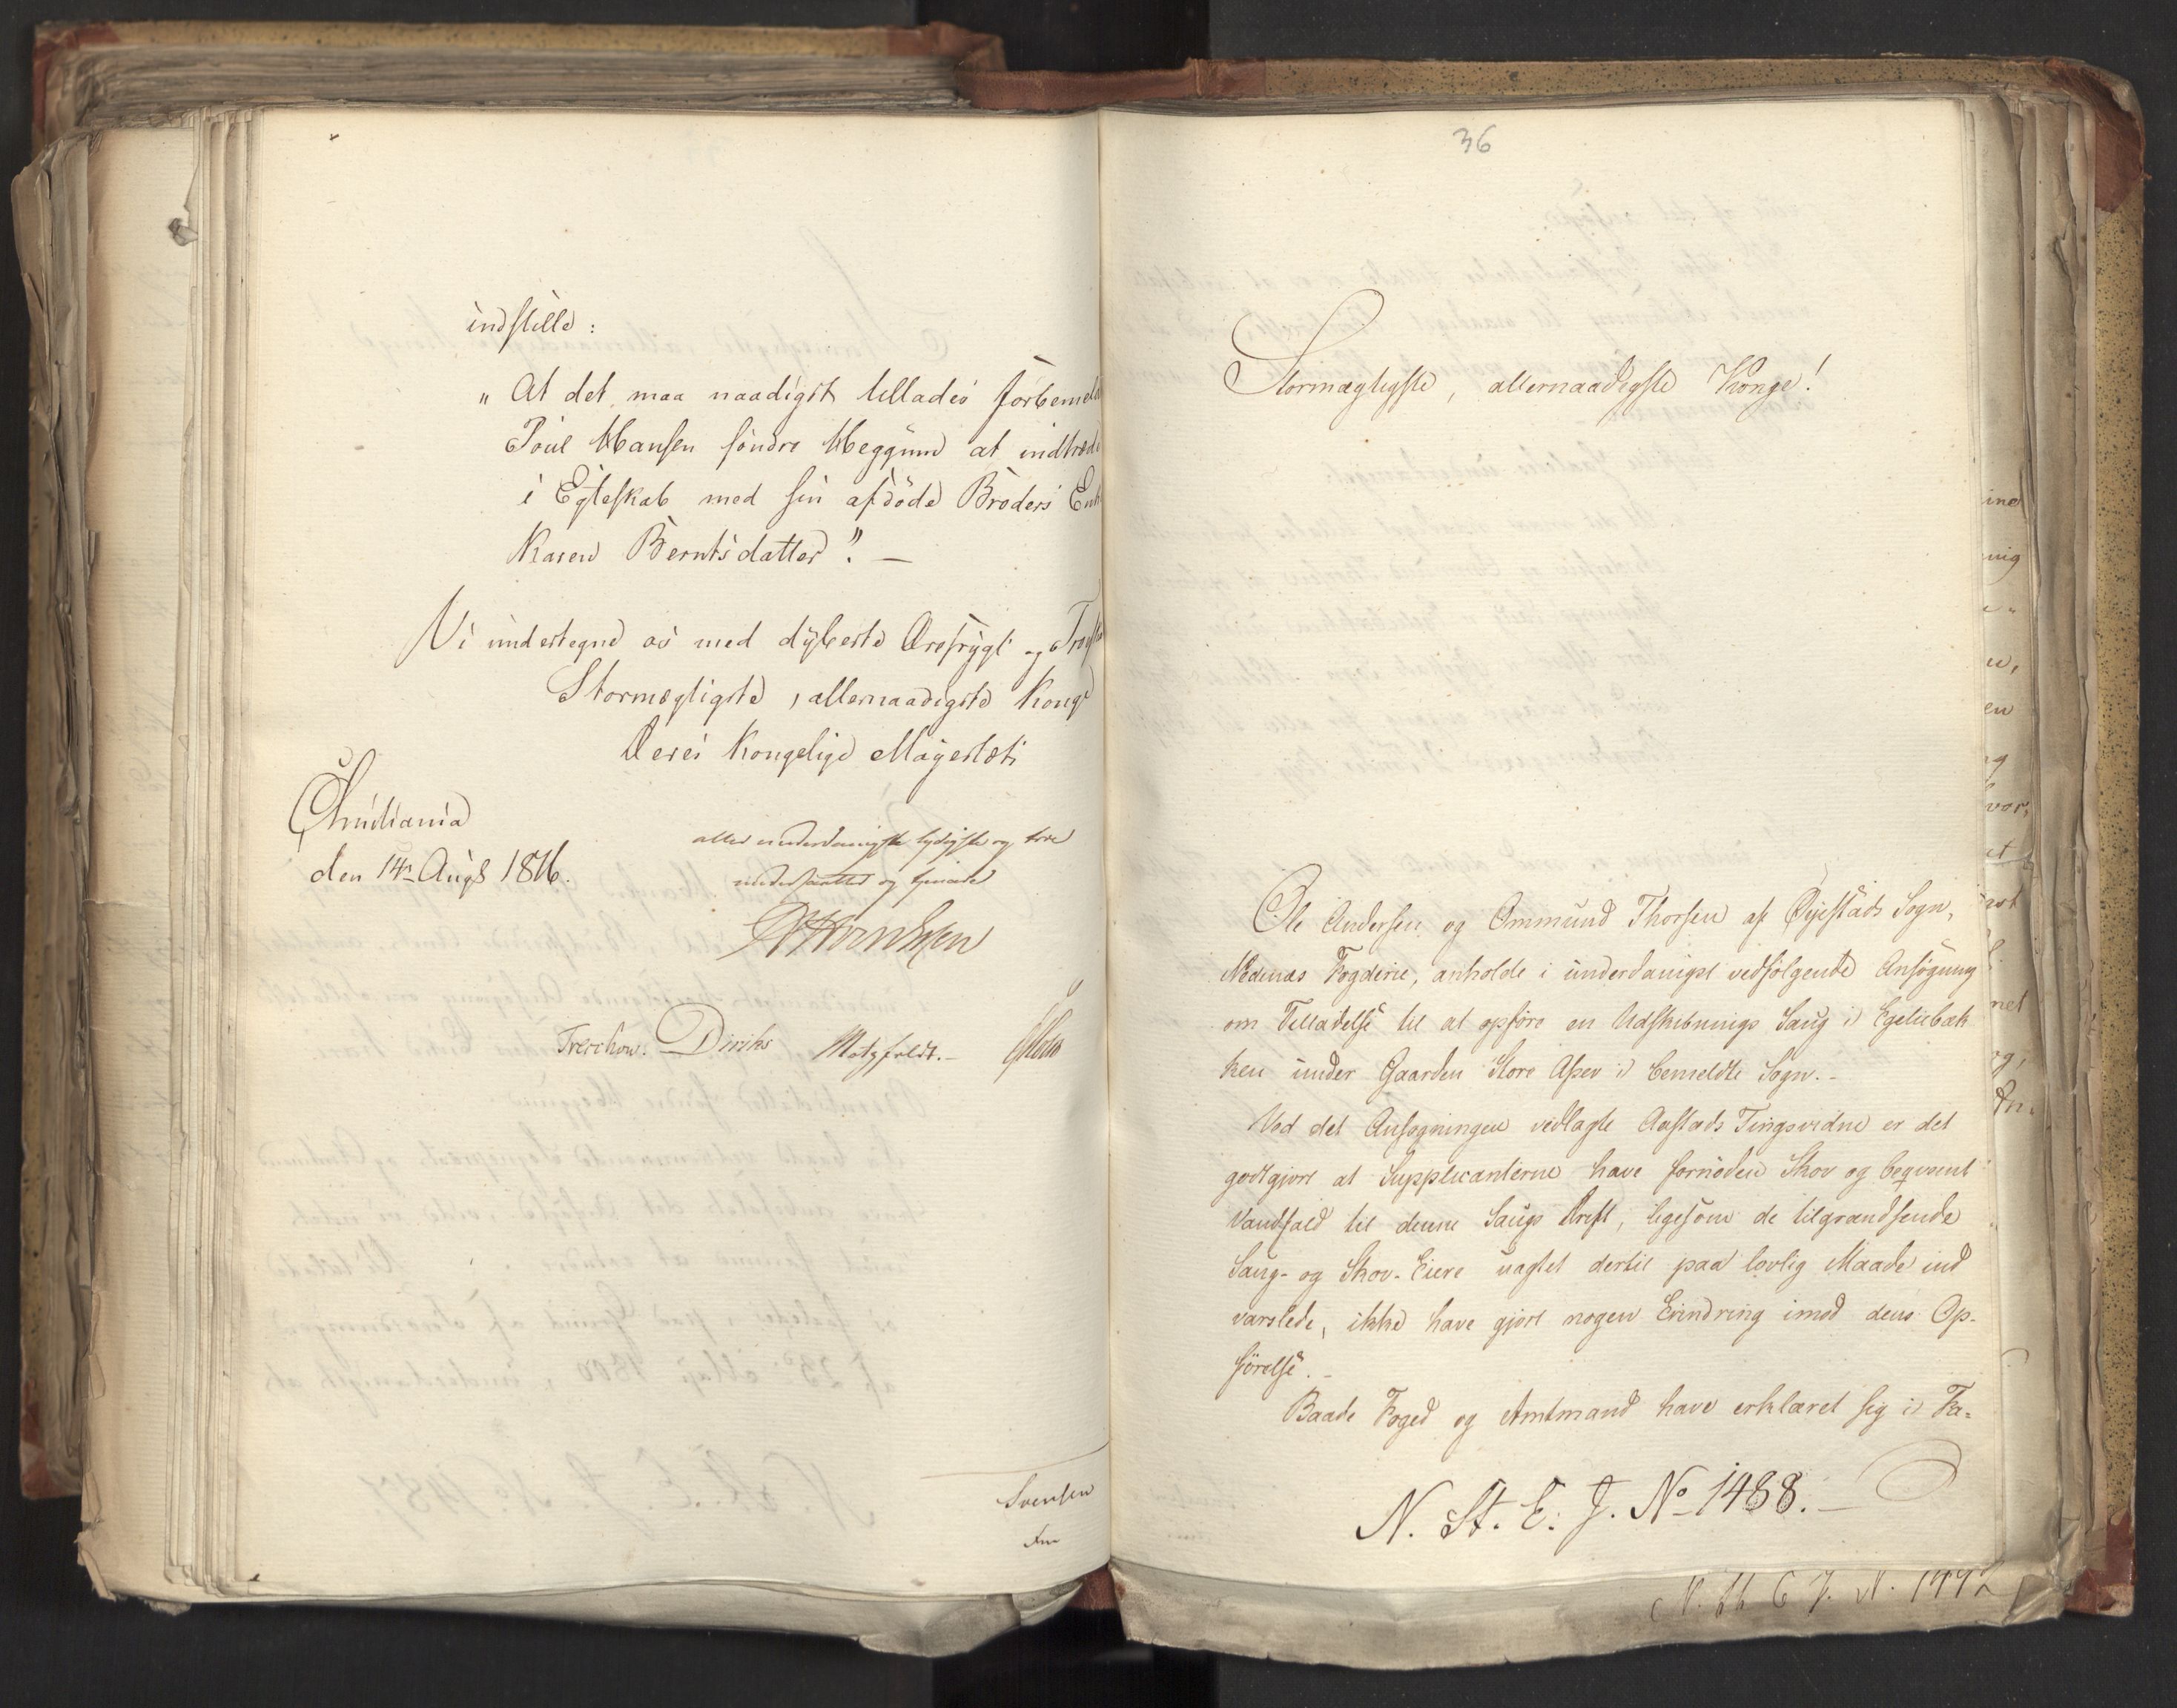 indstille:
" At det maa naadigst tillades forbemeld
Poul Hansen søndre Heggum at indtræde
i Egteskab med sin afdøde Broders Enk
Karen Berntsdatter". —
Vi undertegne os med dybeste Ærefrygt og
Stormægtigste, allernaadigste Konge
Deres Kongelige Majestæts
Christiania
den 14de Augt 1816.
allerunderdanigste lydigste og troe
undersaatter og tjenere
Treschow. Diriks Motzfeldt. —
Svensen
36
Stormægtigste, allernaadigste Konge!
Ole Andersen og Ommund Thorsen af Øyestads Sogn,
Nedenæs Fogderie, anholde i underdanigst vedfølgende Ansøgning
om Tilladelse til at opføre en Udskibnings Saug i Egeliebæk
ken under Gaarden Store Asper i bemeldte Sogn. -
Ved det Ansøgningen vedlagte Aastæds Tingsvidne er det
godtgjort at Supplicanterne have fornøden Skov og beqvemt
Vandfald til denne Saugs Drift, ligesom de tilgrændsende
Saug- og Skov-Eiere uagtet dertil paa lovlig Maade ind
varslede, ikke have gjort nogen Erindring imod dens Op-
førelse. -
Baade Foged og Amtmand have erklæret sig i Fa-
N. St. E. J. No 1488. —